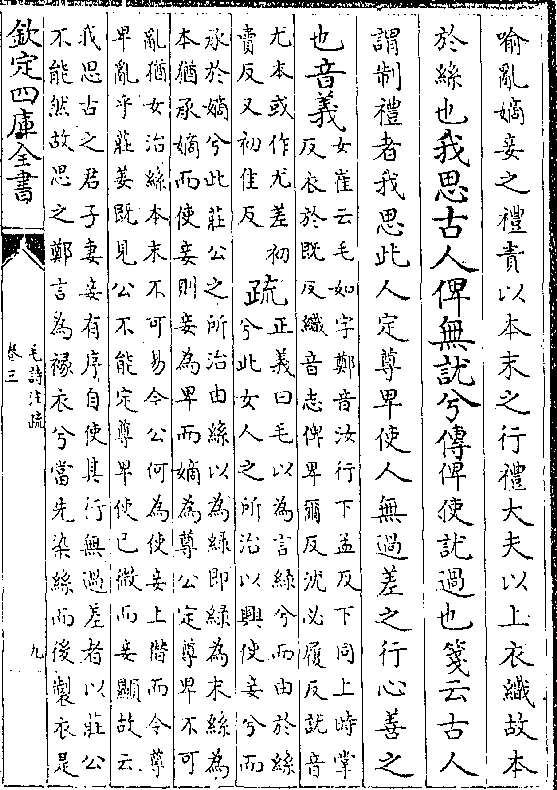 喻亂嫡妾之禮責以本末之行禮大夫以上衣織故本
於絲也我思古人俾無訧兮傳俾使訧過也箋云古人
謂制禮者我思此人定尊卑使人無過差之行心善之
也音義女崔云毛如字鄭音汝行下孟反下同上時掌
反衣於既反織音志俾卑爾反沈必履反訧音
尤本或作尤差初
賣反又初佳反
疏正義曰毛以為言綠兮而由於絲
兮此女人之所治以興使妾兮而
承於嫡兮此莊公之所治由絲以為綠即綠為末絲為
本猶承嫡而使妾則妾為卑而嫡為尊公定尊卑不可
亂猶女治絲本末不可易今公何為使妾上僭而令尊
卑亂乎莊姜既見公不能定尊卑使己微而妾顯故云
我思古之君子妻妾有序自使其行無過差者以莊公
不能然故思之鄭言為褖衣兮當先染絲而後製衣是
欽定四庫全書
毛詩注疏
卷三
九